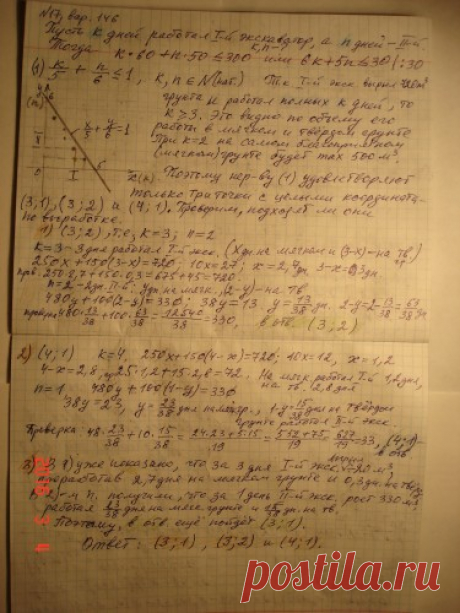 №17, вар. 146
Пусть k дней работал I-й экскаватор, а n дней - II-й.
Тогда k·60+n·50≤300 или 6k+5n≤30 |:30
(1) k/5 + n/6 ≤ 1, k, n ∈ N(нат.) Т.к I-й экс вырыл
грунта и работал полных k дней, то
k ≥ 3. Это видно по объёму его
работы в мягком и твёрдом грунте
При k=2 на самом благоприятном
(мягком) грунте будет max 500 м³
x/5 + y/6 = 1
Поэтому нер-ву (1) удовлетворяют
только три точки с целыми координата-
(3;1), (3;2) и (4;1). Проверим, подходят ли они
по выработке.
1) (3;2), т.е, k=3; n=2
k=3 - 3 дня работал I-й экс. (x дн на мягком и (3-x) - на тв.
250x+150(3-x)=720; 10x=27; x=2,7дн 3-x=0,3дн.
пров. 250·2,7+150·0,3=675+45=720.
n=2 - 2дн. II-й. y дн на мягк, (2-y) - на тв
480y+100(2-y)=330; 38y=13 y=13/38 дн. 2-y=2-13/38=63/38 дн
480·13/38+100·63/38=12540/38=330, в отв. (3;2)
2) (4;1) k=4. 250x+150(4-x)=720; 10x=12, x=1,2
4-x=2,8, 25·1,2+15·2,8=72. На мягк. работал I-й 1,2 дня,
на тв. (2,8 дня
n=1 480y+100(1-y)=330
38y=23, y=23/38 дня на мягк гр., 1-y=15/38 дня на твёрдом
грунте работал II-й экс.
Проверка 48·23/38+10·15/38=(24·23+5·15)/19=(552+75)/19=627/19=33, (4;1)-
в отв
3) 1) уже показано, что за 3 дня I-й экс. 720 м³,
отработав 2,7 дня на мягком грунте и 0,3 дн. на тв.
п. получили, что за 1 день II-й экс. роет 330 м³
работая 23/38 дня на мягк. грунте и 15/38 дн. на тв.
Поэтому, в отв. ещё пойдёт (3;1).
Ответ: (3;1), (3;2) и (4;1).
postila.ru